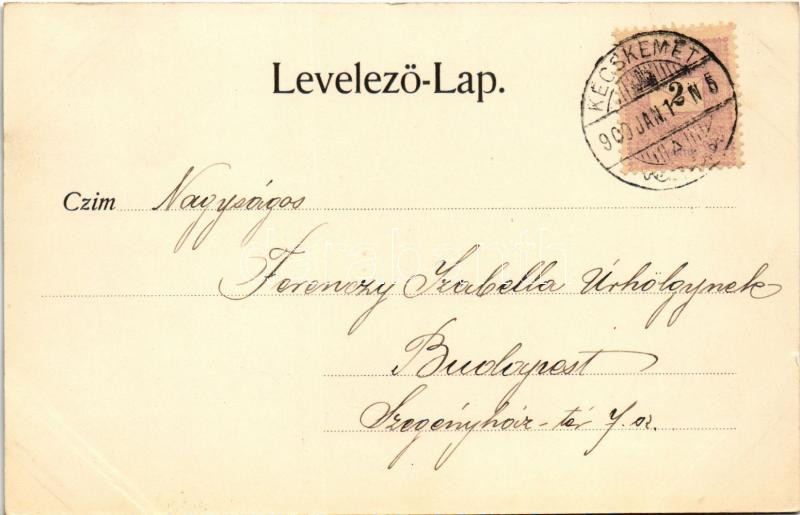 Levelező-Lap.
KECSKEMÉT
2
900 JAN. 1 N 5
A
Czim Nagyságos
Ferenczy Izabella Úrhölgynek
Budapest
Szegényház-tér 7. sz.